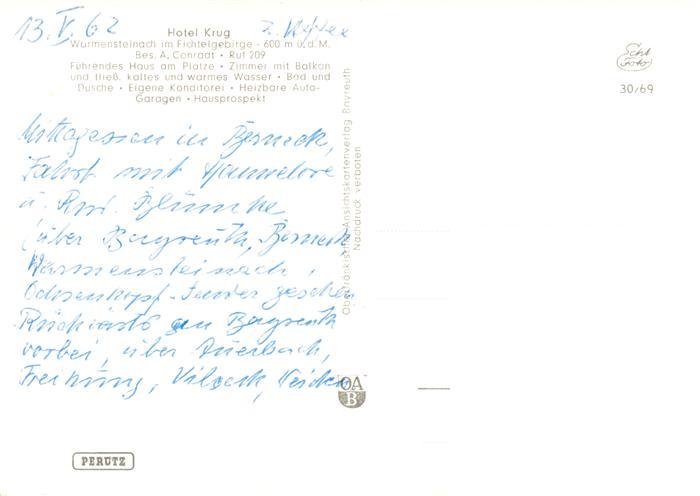 13. V. 62
Hotel Krug
Warmensteinach im Fichtelgebirge - 600 m ü. d. M.
Bes. A. Conradt • Ruf 209
Führendes Haus am Platze • Zimmer mit Balkon
und fließ. kaltes und warmes Wasser • Bad und
Dusche • Eigene Konditorei • Heizbare Auto-
Garagen • Hausprospekt
Mittagessen in Berneck,
Fahrt mit Hannelore
u. Blümke
(über Bayreuth, Berneck,
Warmensteinach,
Ochsenkopf-Sender gesehen
Rückwärts an Bayreuth
vorbei, über Auerbach,
Freihung, Vilseck, Weiden
Oberfränkischer Ansichtskartenverlag Bayreuth
Nachdruck verboten
OA
B
Foto
30/69
PERUTZ